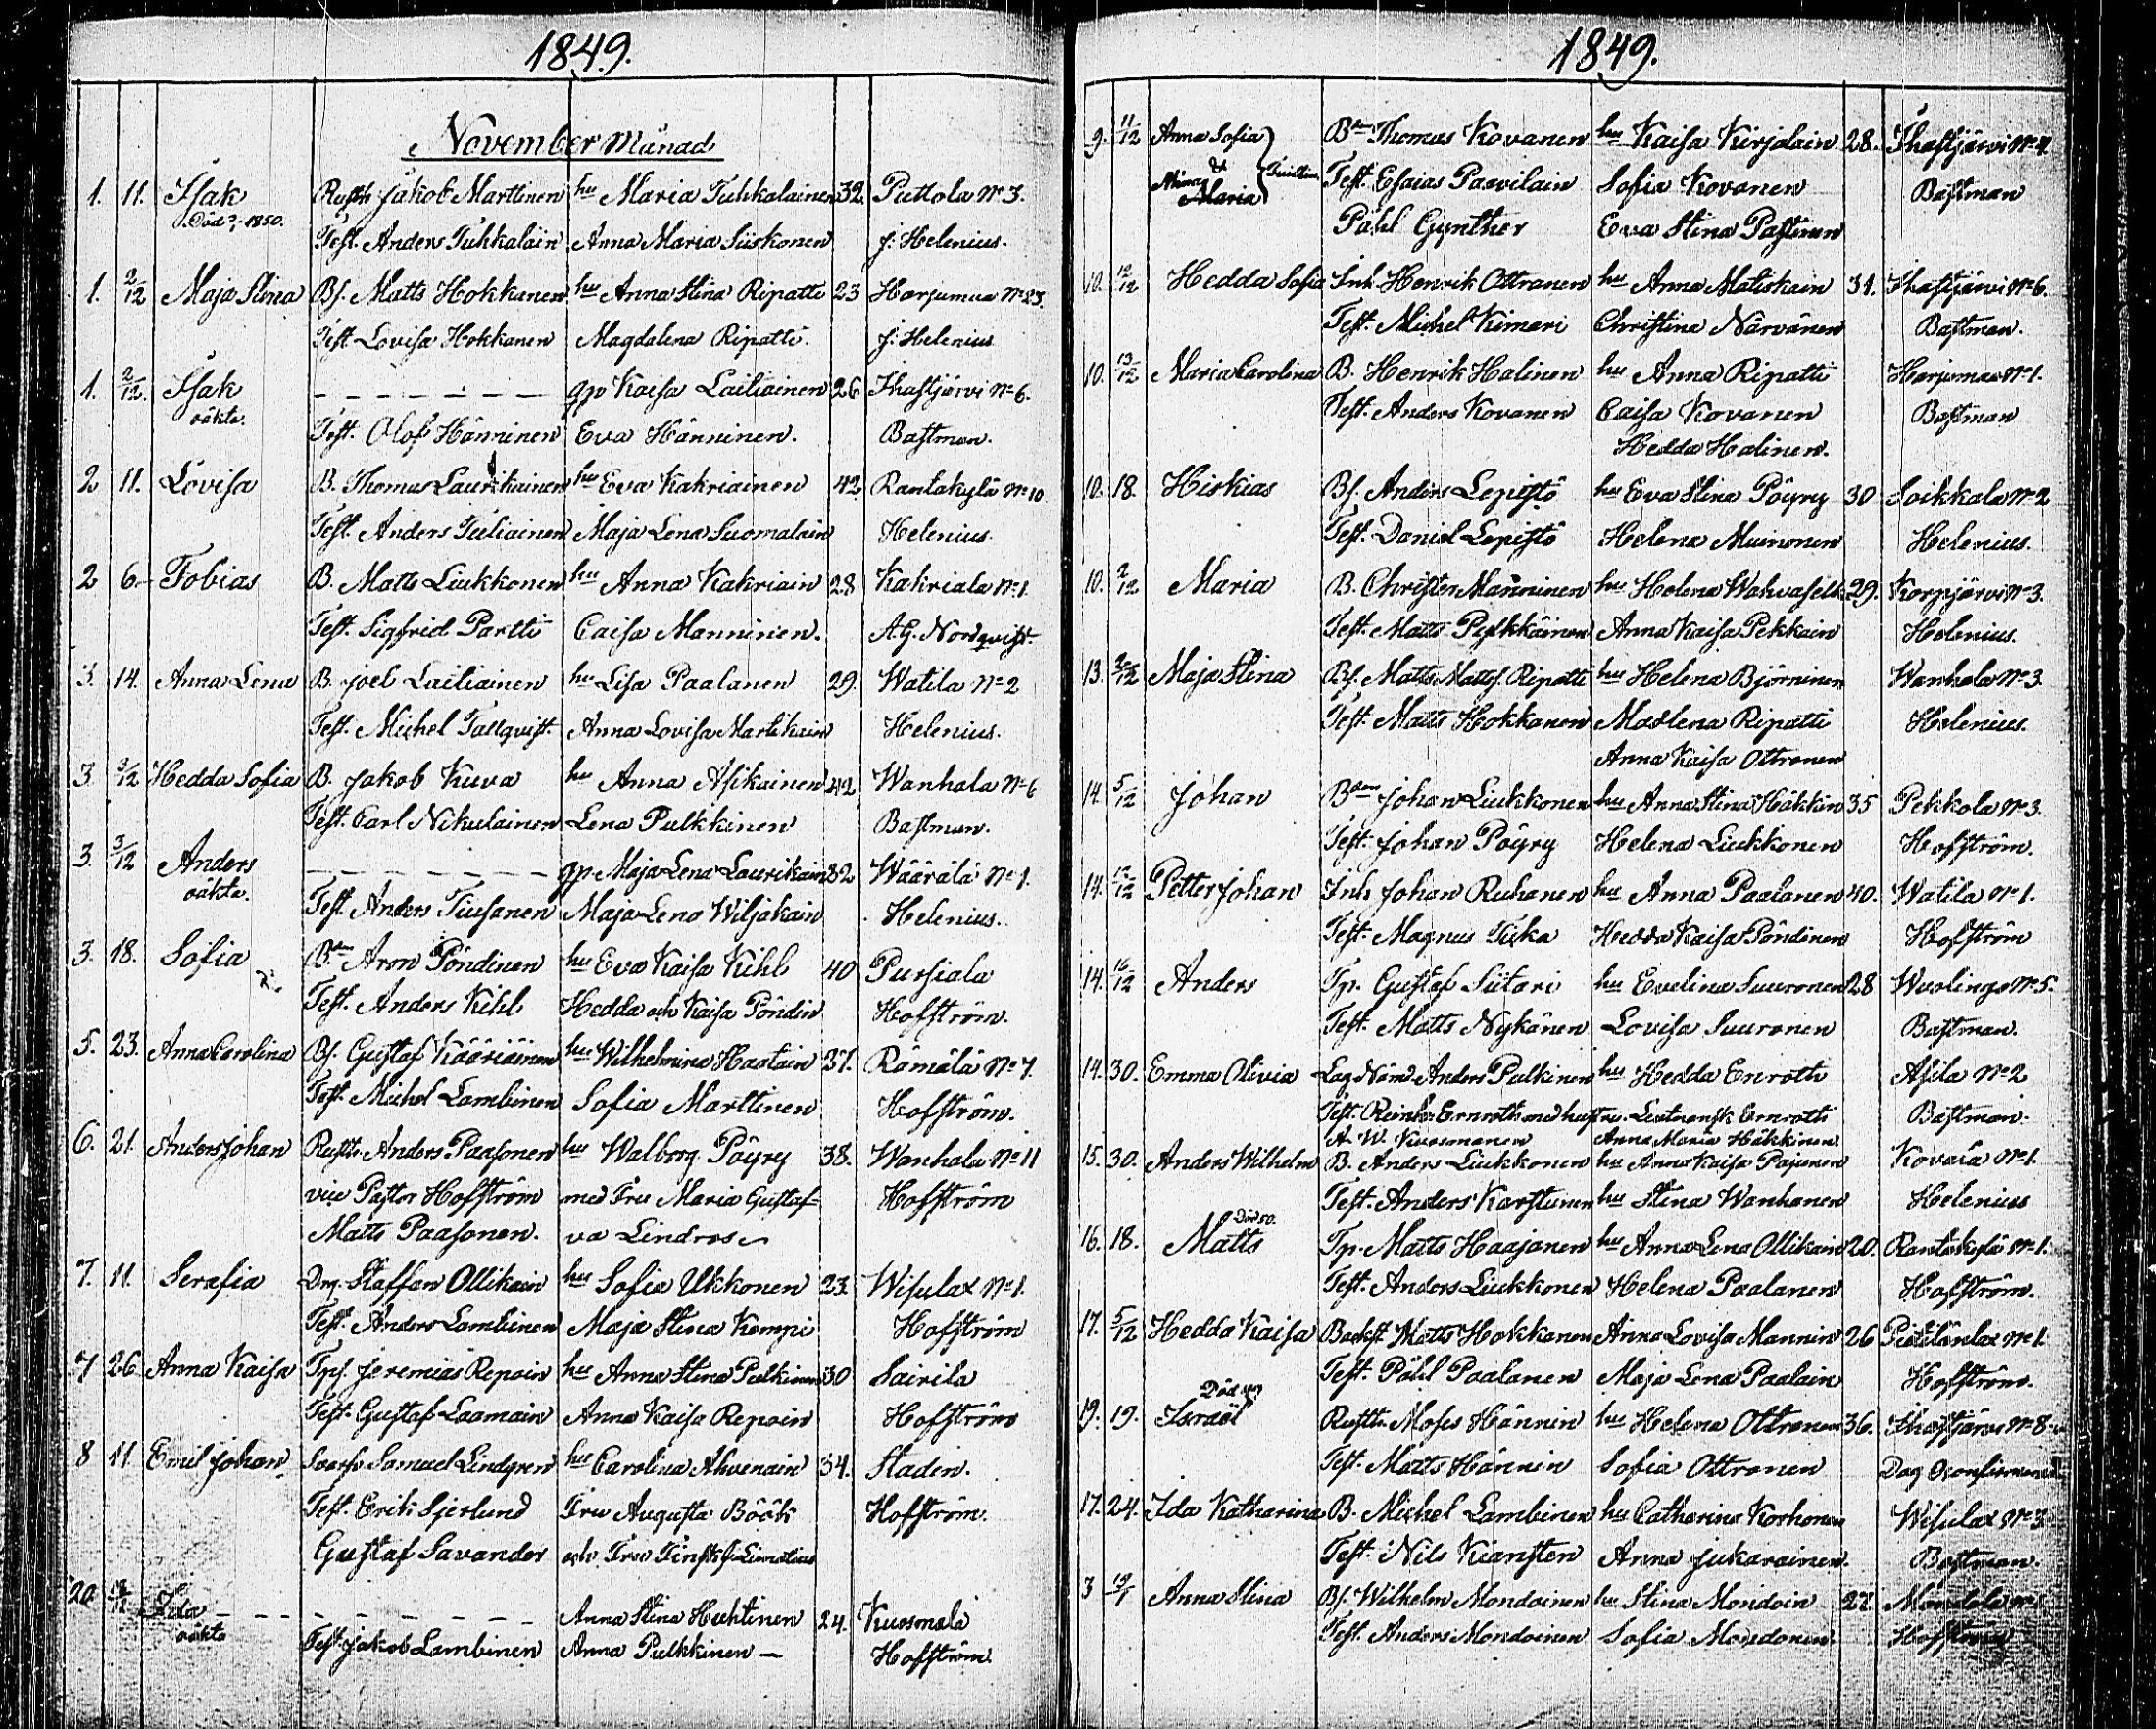 1849.
November Månad
1. 11. Isak Rusth. Jakob Marttinen hu Maria Tuhkalainen 32. Puttola No 3.
Död 1850. Test. Anders Tuhkalain Anna Maria Siiskonen f: Helenius.
1. 2/12 Maja Stina Bs. Matts Hokkanen hu Anna Stina Ripatti 23 Harjumaa No 23.
Test. Lovisa Hokkanen Magdalena Ripatti. f: Helenius
1. 2/12. Isak - - - - - - qp Kaisa Lailiainen 26 Ihastjärvi No 6.
oäkta. Test. Olof Hänninen Eva Hänninen. Bastman.
2 11. Lovisa B. Thomas Laurikainen hu Eva Kakriainen 42 Rantakylä No 10
Test. Anders Tuliainen Maja Lena Suomalain Helenius.
2 6. Tobias B. Matts Liukkonen hu Anna Kakriain 28 Kakriala No 1.
Test. Sigfrid Partti Caisa Manninen. A.G. Nordqvist.
3. 14. Anna Lena B. Joel Lailiainen hu Lisa Paalanen 29. Watila No 2
Test. Michel Tallqvist. Anna Lovisa Martikain Helenius.
3. 3/12 Hedda Sofia B. Jakob Kuva hu Anna Asikainen 42 Wanhala No 6
Test. Carl Nikulainen Lena Pulkkinen Bastman.
3. 3/12 Anders - - - - - - qp Maja Lena Laurikain 32 Wäärälä No 1.
oäkta. Test. Anders Tiusanen Maja Lena Wiljakain Helenius.
3. 18. Sofia Bden Aron Pöndinen hu Eva Kaisa Kihl 40 Pursiala
Test. Anders Kihl Hedda och Kaisa Pöndin Hofström.
5. 23. Anna Carolina Bs. Gustaf Kääriäinen hu Wilhelmina Haatain 37. Rämälä No 7.
Test. Michel Lambinen Sofia Marttinen Hofström.
6. 21. Anders Johan Rusth. Anders Paasonen hu Walborg Pöyry 38. Wanhala No 11
vice Pastor Hofström med Fru Maria Gustaf- Hofström
Matts Paasonen. va Lindros
7. 11. Serafia Drg. Staffan Ollikain hu Sofia Ukkonen 23. Wisulax No 1.
Test. Anders Lambinen Maja Stina Kempi Hofström
7 26 Anna Kaisa Tps. Jeremias Repoin hu Anna Stina Pulkinen 30 Sairila
Test. Gustaf Laamain Anna Kaisa Repoin Hofström
8 11. Emil Johan Svarfv. Samuel Lindgren hu Carolina Ahvenain 34. Staden.
Test. Erik Sjerlund Fru Augusta Böök Hofström.
Gustaf Savander och Fru
20. Ida - - - - - - Anna Stina Huhtinen 24. Kuosmala
oäkta Test. Jakob Lambinen Anna Pulkkinen — Hofström.
1849.
9. 11/12 Anna Sofia Bden Thomas Kovanen hu Kaisa Kirjalain 28. Ihastjärvi No 4.
& Mina Maria Tvillin. Test. Esaias Paavilain Sofia Kovanen Bastman
Påhl Gynther Eva Stina Pastinen
10. 12/12 Hedda Sofia Inh. Henrik Ottranen hu Anna Matiskain 31. Ihastjärvi No 6.
Test. Michel Kimari Christina Närvänen Bastman.
10. 13/12 Maria Carolina B. Henrik Halinen hu Anna Ripatti Harjumaa No 1.
Test. Anders Kovanen Caisa Kovanen Bastman
Hedda Halinen.
10. 18. Hiskias Bs. Anders Lepistö hu Eva Stina Pöyry 30 Soikkala No 2
Test. Daniel Lepistö Helena Muinonen Helenius.
10. 2/12 Maria B. Christer Manninen hu Helena Wahvaselk. 29. Korpjärvi No 3.
Test. Matts Pulkkäinen Anna Kaisa Pekkain Helenius.
13. Maja Stina Bs. Matts Mattss. Ripatti hu Helena Björninen Wanhala No 3.
Test. Matts Hokkanen Madlena Ripatti Helenius.
Anna Kaisa Ottronen
14. 5/12 Johan Bden Johan Liukkonen hu Anna Stina Häkkin 35 Pekkola No 3.
Test. Johan Pöyry Helena Liukkonen Hofström.
14. 12/12 Petter Johan Inh. Johan Ruhanen hu Anna Paalanen 40. Watila No 1.
Test. Magnus Tuka Hedda Kaisa Pöndinen Hofström
14. 16/12 Anders Tp. Gustaf Siitari hu Evelina Suuronen 28 Wuolingo No 5.
Test. Matts Nykänen Lovisa Suuronen Bastman.
14. 30. Emma Olivia Lag. Näm. Anders Pulkinen hu Hedda Enroth Asila No 2
Test. Reinh. Ernroth med hustru. Ernroth Bastman.
A. W. Kuosmanen Anna Maria Häkkinen
15. 30. Anders Wilhelm B. Anders Liukkonen hu Anna Kaisa Pajunen Kovala No 1.
Test. Anders Karstunen hu Stina Wanhanen Helenius
Död 50.
16. 18. Matts Tp. Matts Haajanen hu Anna Lena Ollikain 20. Rantakylä No 1.
Test. Anders Liukkonen Helena Paalanen Hofström.
17. 5/12 Hedda Kaisa Backst. Matts Hokkanen Anna Lovisa Mannin 26 No 1.
Test. Påhl Paalanen Maja Lena Paalain Hofström.
Död
19. 19. Israel Rusth. Moses Hännin hu Helena Ottronen 36. Ihastjärvi No 8.
Test. Matts Hännin Sofia Ottronen Dag
17. 24. Ida Katharina B. Michel Lambinen hu Catharina Korhonen Wisulax No 3.
Test. Nils Kiansten Anna Jukarainen. Bastman.
3 Anna Stina Bs. Wilhelm Mondoinen hu Stina Mondoin 27. Mondola
Test. Anders Mondoinen Sofia Mondonen. Hofström